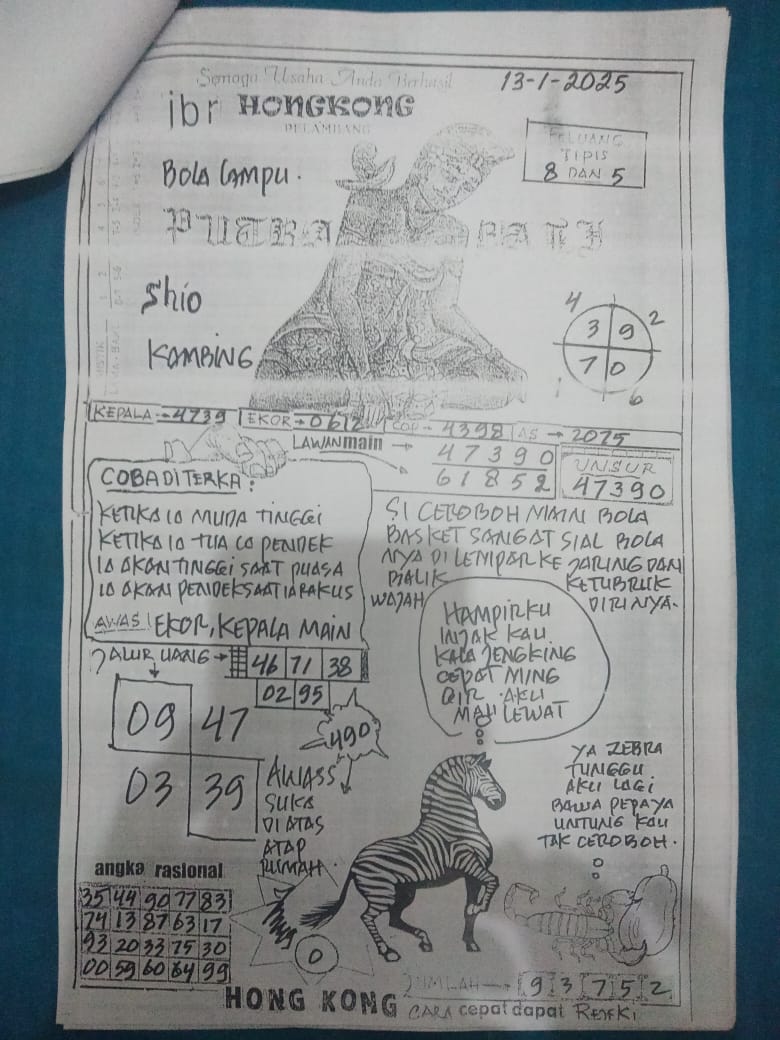 Semoga Usaha Anda Berhasil
13-1-2025
ibr HONGKONG
PELAMBANG
PELUANG
TIPIS
8 DAN 5
BOLA LAMPU.
PUTRA PATI
Shio
KAMBING
4 3 9 2
7 0 6
KEPALA → 4739 EKOR → 0612 COP → 4398 AS → 2075
LAWAN main → 47390
61852
UNSUR
47390
COBA DITERKA :
KETIKA IA MUDA TINGGI
KETIKA IA TUA IA PENDEK
IA AKAN TINGGI SAAT PUASA
IA AKAN PENDEK SAAT IA RAKUS
AWAS! EKOR, KEPALA MAIN
SI CEROBOH MAIN BOLA
BASKET SANGAT SIAL BOLA
NYA DI LEMPAR KE JARING DAN
BALIK KETUBRUK
WAJAH DIRINYA.
JALUR UANG → 46 71 38
02 95
09 47
03 39
490
AWASS
SUKA
DIATAS
ATAP
RUMAH.
HAMPIRKU
INJAK KAU
KALA JENGKING
CEPAT MING
GIR AKU
MAU LEWAT
YA ZEBRA
TUNGGU
AKU LAGI
BAWA PEPAYA
UNTUNG KAU
TAK CEROBOH.
angka rasional
35 44 90 77 83
74 13 87 63 17
93 20 33 75 30
00 59 60 64 99
0
JUMLAH → 9 3 7 5 2
HONG KONG CARA cepat dapat REJEKI